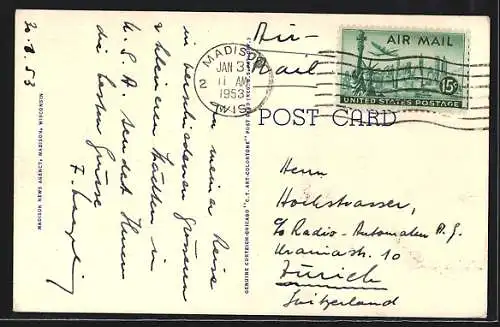 30.1.53
Auf meiner Reise
in verschiedenen grösseren
& kleineren Städten in
U.S.A sendet Ihnen
die besten Grüsse
MADISON NEWS AGENCY, MADISON, WISCONSIN
GENUINE CURTEICH-CHICAGO "C.T. ART-COLORTONE" POST CARD
Air-
Mail
MADISON
JAN 3
11 AM
2
1953
WIS.
AIR MAIL
15¢
UNITED STATES POSTAGE
POST CARD
Herrn
Hochstrasser,
c/o Radio-Automaten A.G.
Uraniastr. 10
Zürich
Switzerland